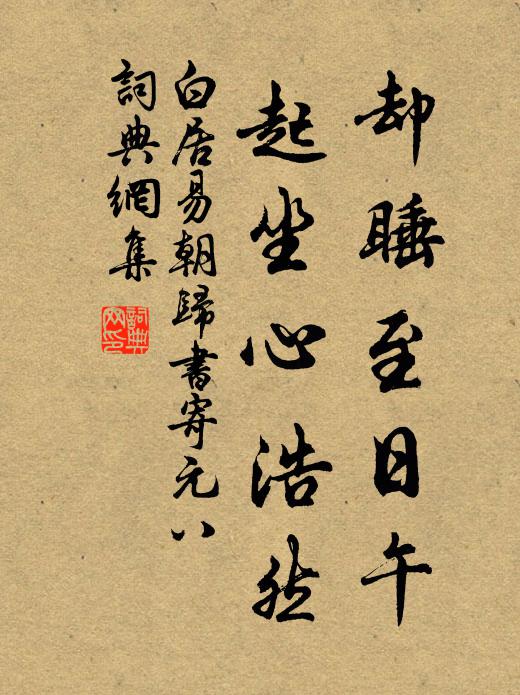 却睡至日午
起坐心浩然
白居易朝歸書寄元八
詞典網集
詞典
网印